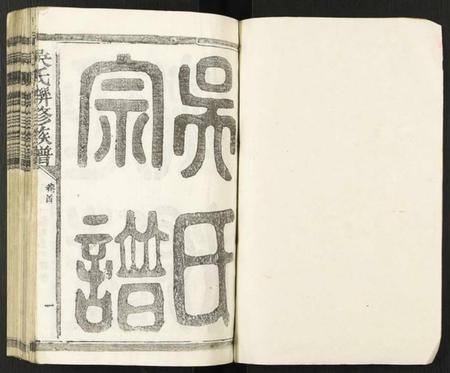 吳氏
宗譜
吳氏聯修族譜
卷首
一